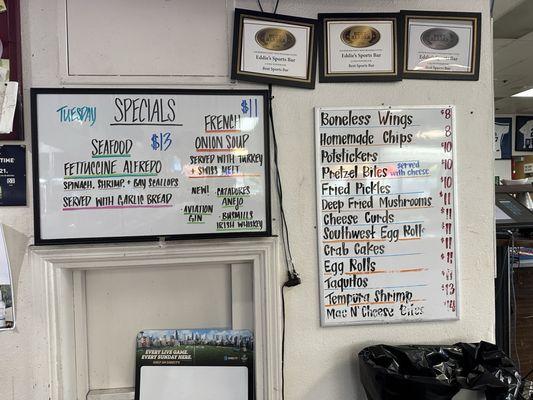 Eddie's Sports Bar
Best Sports Bar
Eddie's Sports Bar
Best Sports Bar
Eddie's Sports Bar
TUESDAY SPECIALS
SEAFOOD $13
FETTUCCINE ALFREDO
SPINACH, SHRIMP, + BAY SCALLOPS
SERVED WITH GARLIC BREAD
FRENCH $11
ONION SOUP
SERVED WITH TURKEY
+ SWISS MELT
NEW! · PATADORES
AÑEJO
· AVIATION
GIN
· BUSMILLS
IRISH WHISKEY
Boneless Wings $8
Homemade Chips 8
Potstickers $10
Pretzel Bites served with cheese $10
Fried Pickles $10
Deep Fried Mushrooms
Cheese Curds $11
Southwest Egg Rolls $11
Crab Cakes $11
Egg Rolls $11
Taquitos $11
Tempura Shrimp $13
Mac N' Cheese Bites
EVERY LIVE GAME.
EVERY SUNDAY HERE.